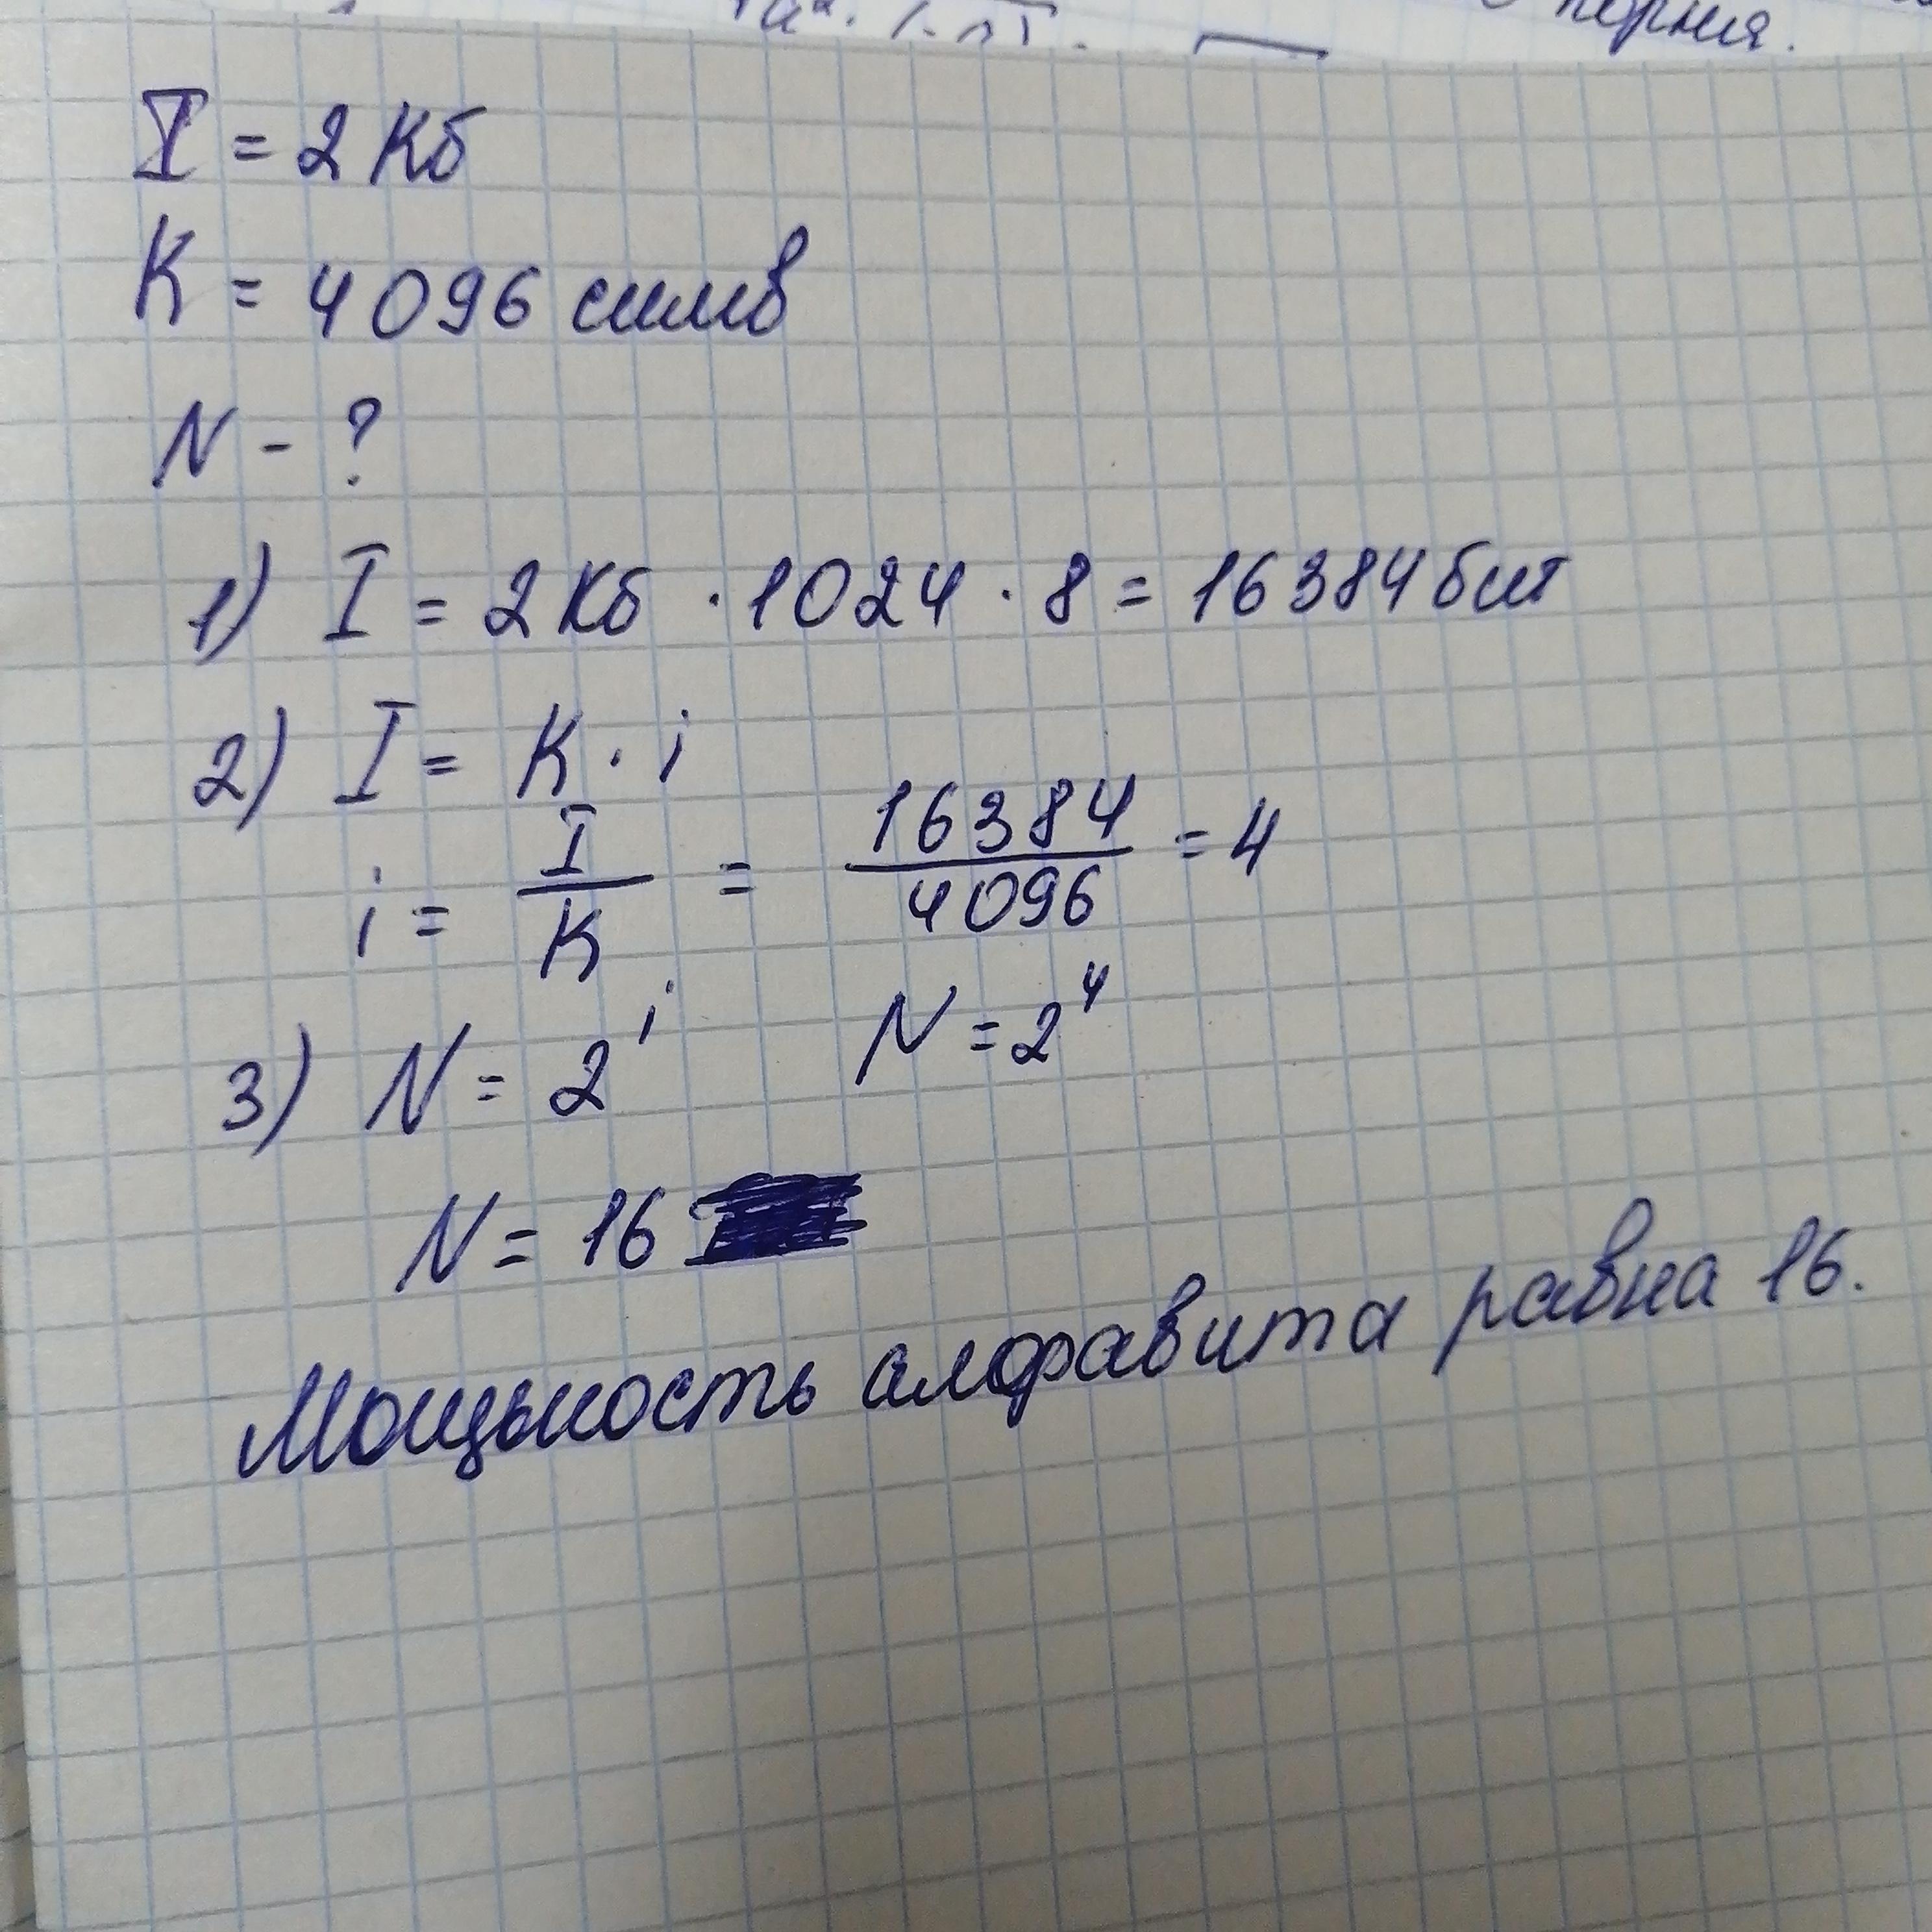 корня.
I = 2 Кб
K = 4096 симв
N - ?
1) I = 2 Кб · 1024 · 8 = 16384 бит
2) I = K · i
i = I/K = 16384/4096 = 4
3) N = 2^i N = 2^4
N = 16
Мощьность алфавита равна 16.